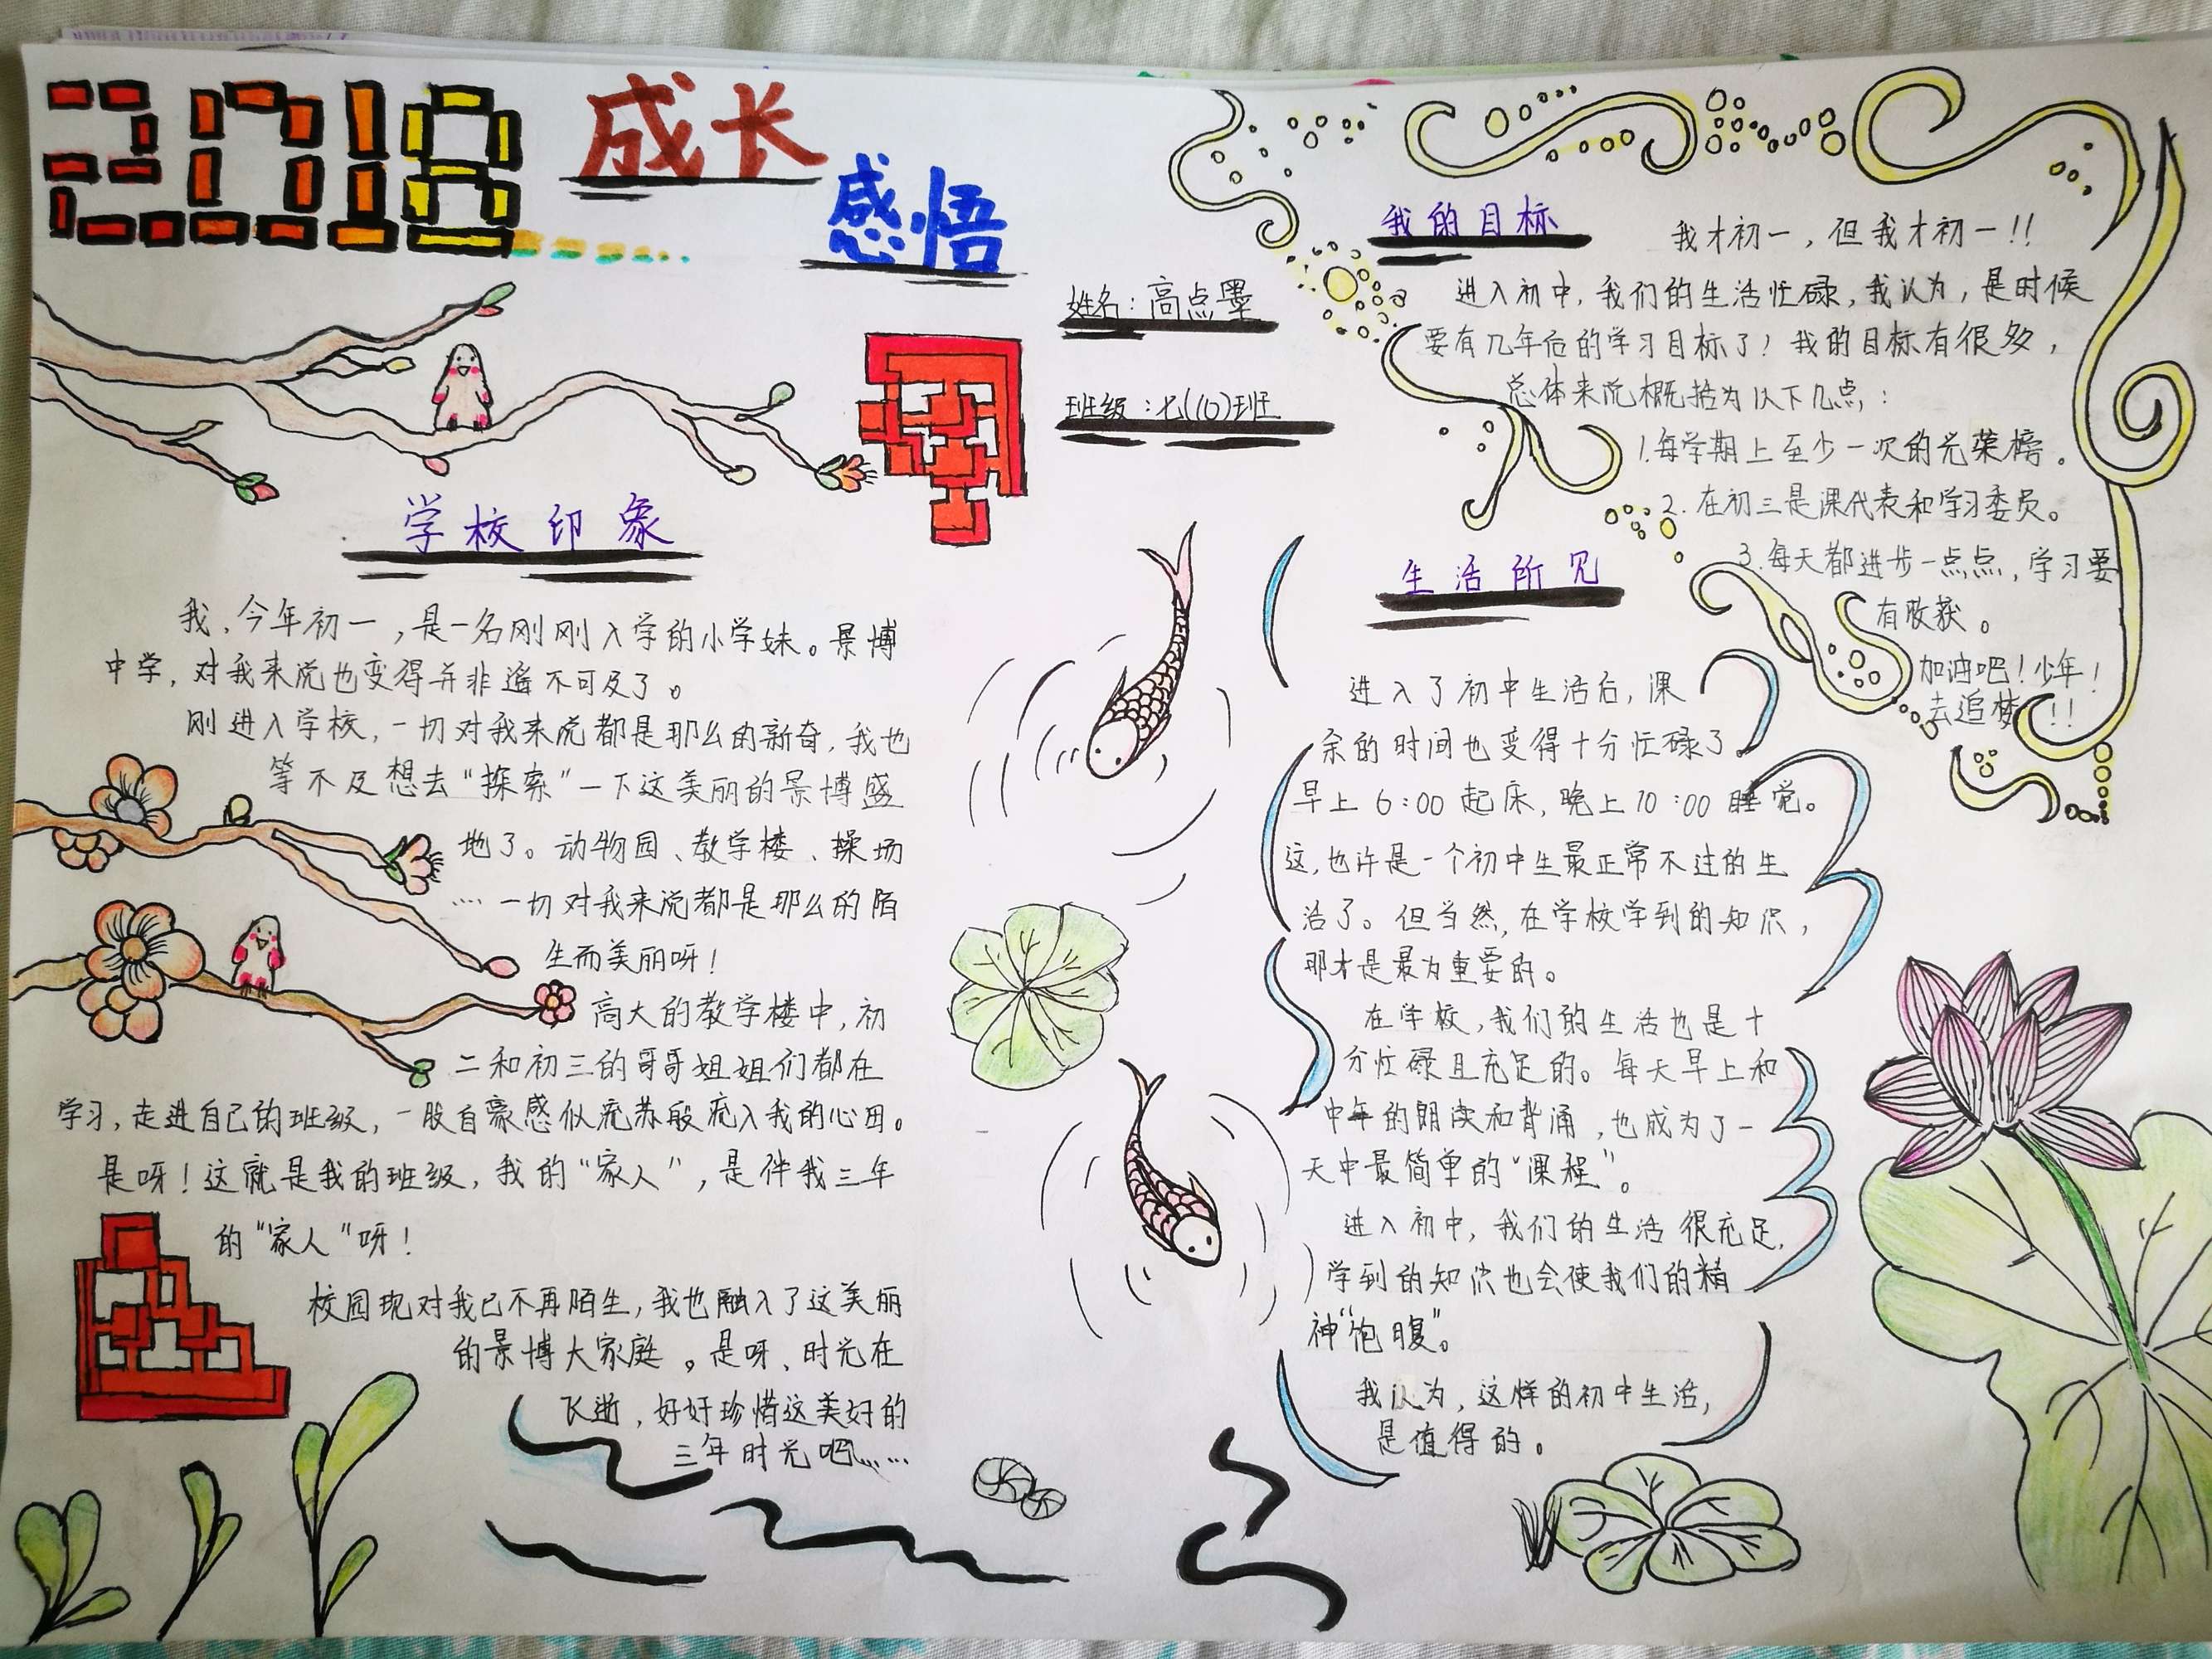 2018
成长
感悟
姓名:高点墨
班级:七(10)班
学校印象
我,今年初一,是一名刚刚入学的小学妹。景博
中学,对我来说也变得并非遥不可及了。
刚进入学校,一切对我来说都是那么的新奇,我也
等不及想去“探索”一下这美丽的景博盛
地了。动物园、教学楼、操场
……一切对我来说都是那么的陌
生而美丽呀!
高大的教学楼中,初
二和初三的哥哥姐姐们都在
学习,走进自己的班级,一股自豪感似流苏般流入我的心田。
是呀!这就是我的班级,我的“家人”,是伴我三年
的“家人”呀!
校园现对我已不再陌生,我也融入了这美丽
的景博大家庭。是呀、时光在
飞逝,好好珍惜这美好的
三年时光吧……
我的目标
我才初一,但我才初一!!
进入初中,我们的生活忙碌,我认为,是时候
要有几年后的学习目标了!我的目标有很多,
总体来说概括为以下几点:
1.每学期上至少一次的光荣榜。
2.在初三是课代表和学习委员。
3.每天都进步一点点,学习要
有收获。
加油吧!少年!
去追梦!!
生活所见
进入了初中生活后,课
余的时间也变得十分忙碌了。
早上6:00起床,晚上10:00睡觉。
这,也许是一个初中生最正常不过的生
活了。但当然,在学校学到的知识,
那才是最为重要的。
在学校,我们的生活也是十
分忙碌且充足的。每天早上和
中午的朗读和背诵,也成为了一
天中最简单的“课程”。
进入初中,我们的生活很充足,
学到的知识也会使我们的精
神“饱腹”。
我认为,这样的初中生活,
是值得的。